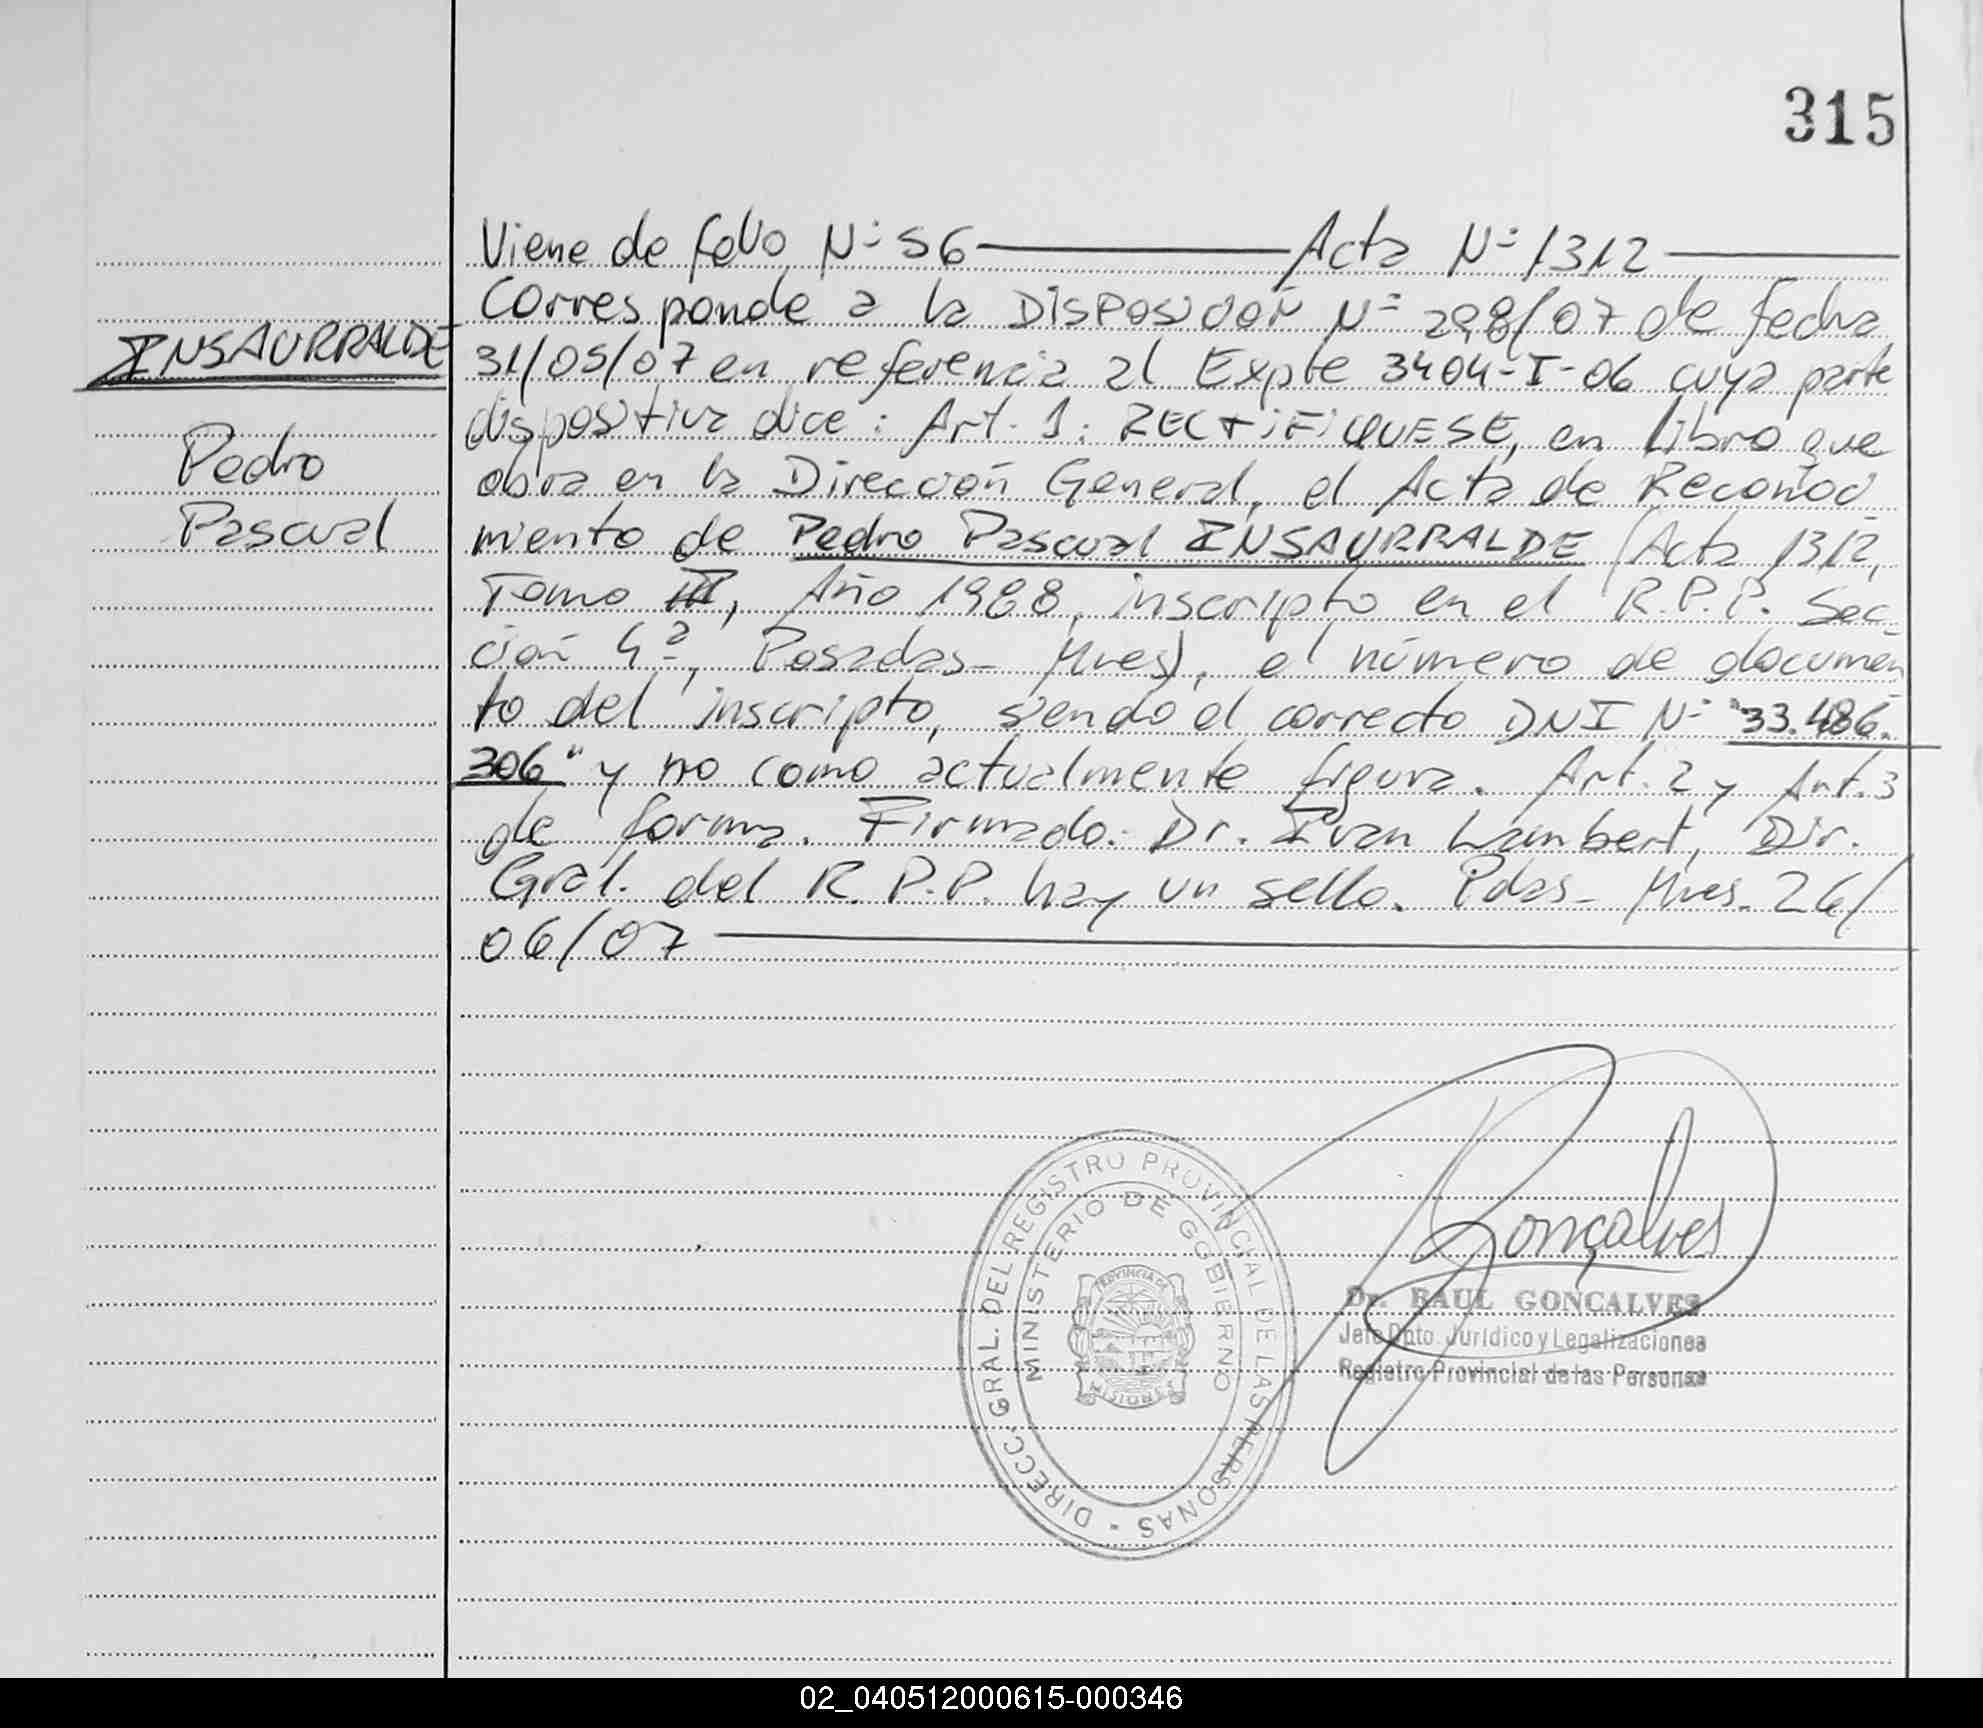 315
Viene de folio N° 56 — Acta N° 1312 —
Corresponde a la DISPOSICION N° 298/07 de fecha
INSAURRALDE
31/05/07 en referencia al Expte 3404-I-06 cuya parte
dispositiva dice: Art. 1: RECTIFIQUESE, en libro que
Pedro
obra en la Dirección General, el Acta de Reconoci
Pascual
miento de Pedro Pascual INSAURRALDE (Acta 1312,
Tomo III, Año 1988, inscripto en el R.P.P. Sec-
ción 4ª, Posadas- Mnes), el número de documen
to del inscripto, siendo el correcto DNI N° "33.486.
306" y no como actualmente figura. Art. 2 y Art. 3
de forma. Firmado: Dr. Ivan Lambert, Dir.
Gral. del R.P.P. hay un sello. Pdas- Mnes. 26/
06/07 —
DIRECC. GRAL. DEL REGISTRO PROVINCIAL DE LAS PERSONAS -
MINISTERIO DE GOBIERNO
PROVINCIA DE
MISIONES
Gonçalves
Dr. RAUL GONÇALVES
Jefe Dpto. Jurídico y Legalizaciones
Registro Provincial de las Personas
02_040512000615-000346